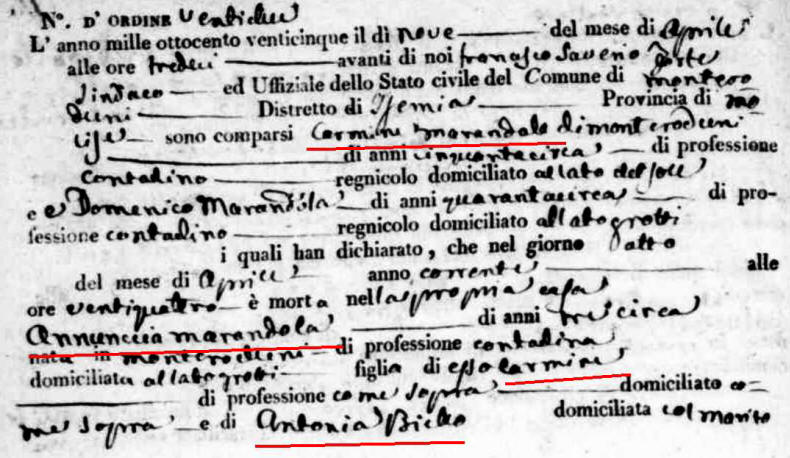 N°. D' ORDINE ventidue
L' anno mille ottocento venticinque il dì nove del mese di Aprile
alle ore tredeci avanti di noi Francesco Saverio
Sindaco ed Uffiziale dello Stato civile del Comune di Montero
duni Distretto di Isernia Provincia di Mo
lise sono comparsi Carmine Marandola di Monteroduni
di anni cinquanta circa di professione
contadino regnicolo domiciliato al lato del sole
e e Domenico Marandola di anni quaranta circa di pro-
fessione contadino regnicolo domiciliato al lato grotti
i quali han dichiarato, che nel giorno otto
del mese di Aprile anno corrente alle
ore ventiquattro è morta nella propria casa
Annunccia Marandola di anni tre circa
nata in Monteroduni di professione contadina
domiciliata al lato grotti figlia di esso Carmine
di professione come sopra domiciliato co=
me sopra e di Antonia domiciliata col marito